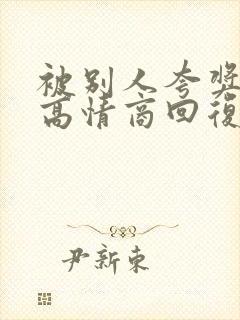 被别人夸奖
高情商回復
尹新東